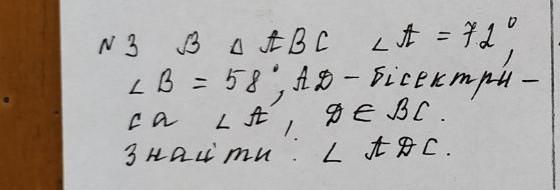 №3 В △ ABC ∠A = 72°,
∠B = 58°, AD - бісектри-
са ∠A, D ∈ BC.
Знайти: ∠ ADC.